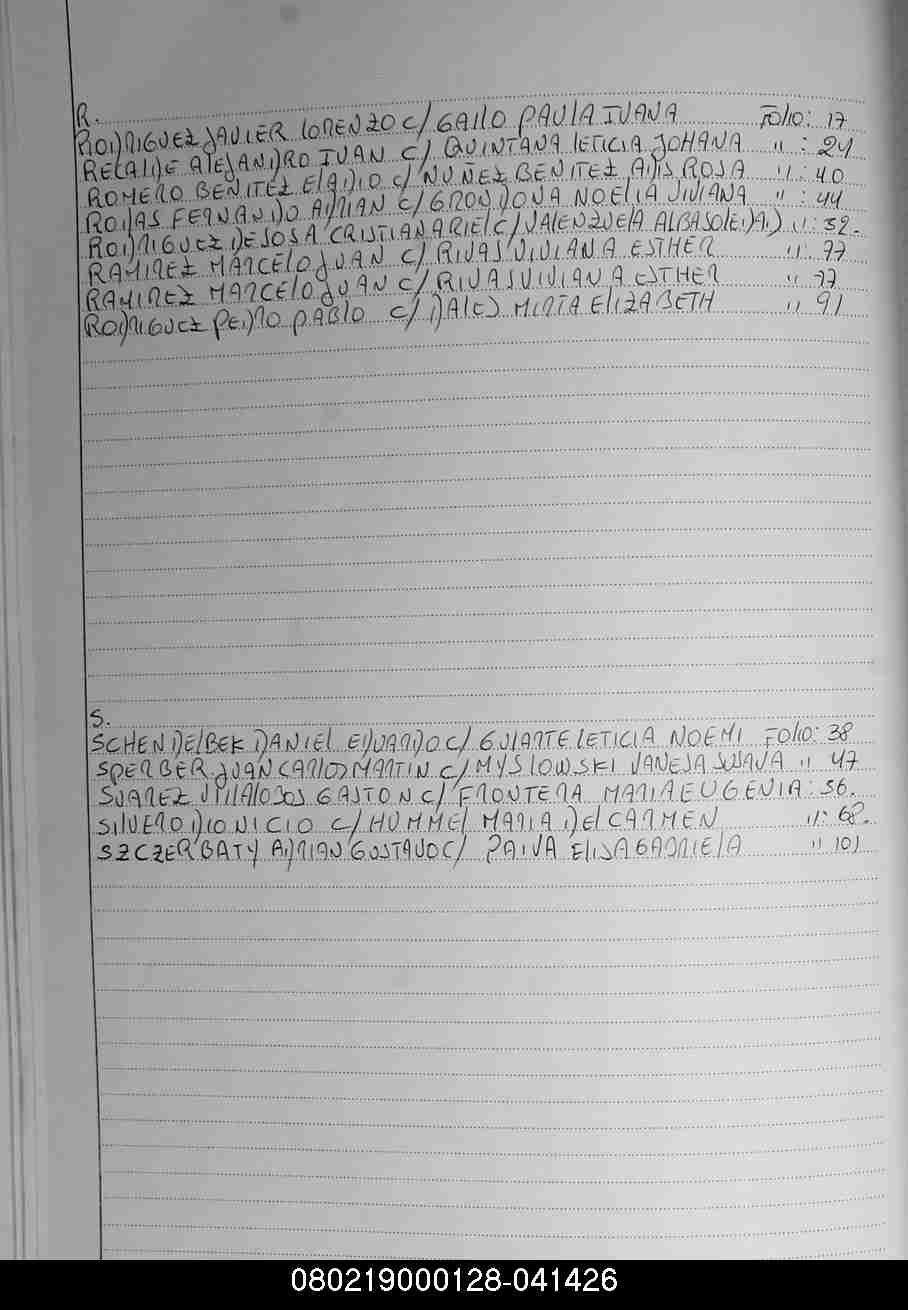 R.
RODRIGUEZ JAVIER LORENZO C/ GALLO PAULA IVANA Folio: 17
RECALDE ALEJANDRO IVAN C/ QUINTANA LETICIA JOHANA " : 24
ROMERO BENITEZ ELADIO C/ NUÑEZ BENITEZ ROSA " : 40
ROJAS FERNANDO ADRIAN C/ GRONDONA NOELIA VIVIANA " : 44
RODRIGUEZ DE SOSA CRISTIAN ARIEL C/ VALENZUELA ALBA SOLEDAD " : 52.
RAMIREZ MARCELO JUAN C/ RIVAS VIVIANA ESTHER " : 77
RAMIREZ MARCELO JUAN C/ RIVAS VIVIANA ESTHER " 77
RODRIGUEZ PEDRO PABLO C/ MIRTA ELIZABETH " 91
S.
SCHENDELBEK DANIEL EDUARDO C/ LETICIA NOEMI Folio: 38
SPERBER JUAN CARLOS MARTIN C/ MYSLOWSKI VANESA SUSANA " 47
SUAREZ VILLALOBOS GASTON C/ FRONTERA MARIA EUGENIA : 56.
SILVERO DIONICIO C/ HUMMEL MARIA DEL CARMEN " : 68.
SZCZERBATY ADRIAN GUSTAVO C/ PAIVA ELISA GABRIELA " 101
080219000128-041426